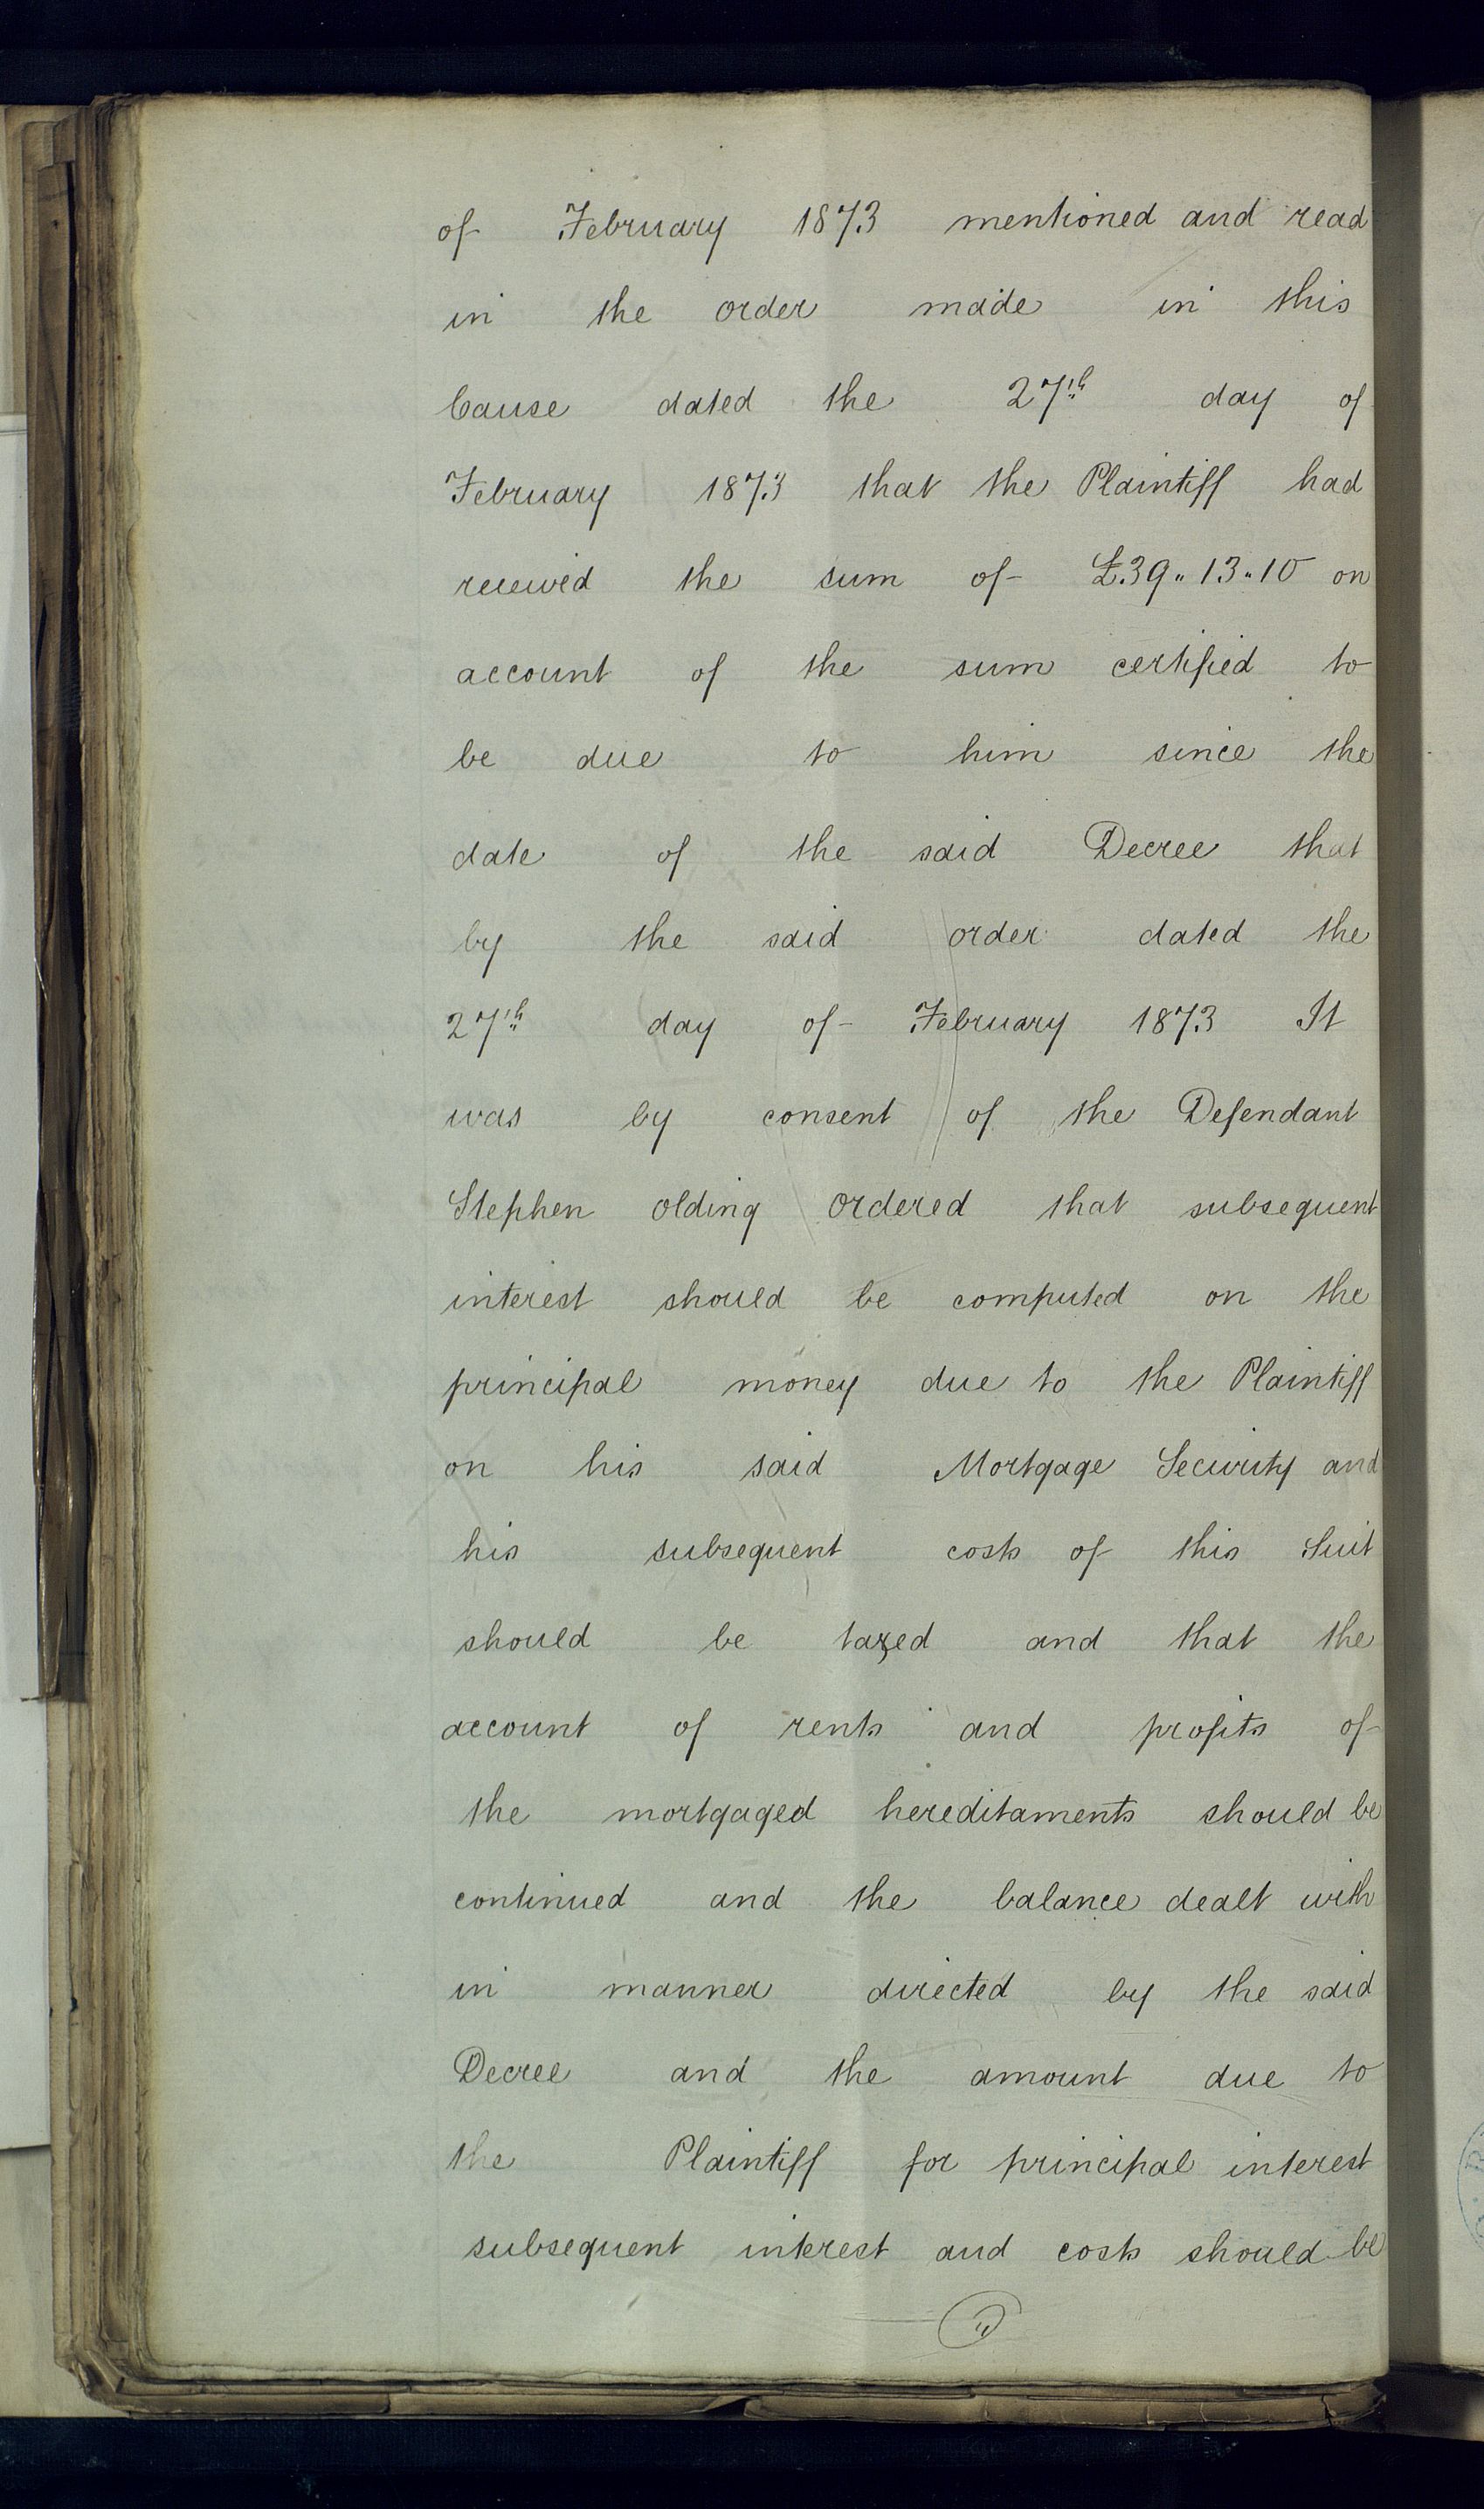 of February 1873 mentioned and read
in the order made in this
Cause dated the 27th day of
February 1873 that the Plaintiff had
received the sum of £39..13..10 on
account of the sum certified to
be due to him since the
date of the said Decree that
by the said order dated the
27th day of February 1873 It
was by consent of the Defendant
Stephen olding ordered that subsequent
interest should be computed on the
principal money due to the Plaintiff
on his said Mortgage Security and
his subsequent costs of this Suit
should be taxed and that the
account of rents and profits of
the mortgaged hereditaments should be
continued and the balance dealt with
in manner directed by the said
Decree and the amount due to
the Plaintiff for principal interest
subsequent interest and costs should be